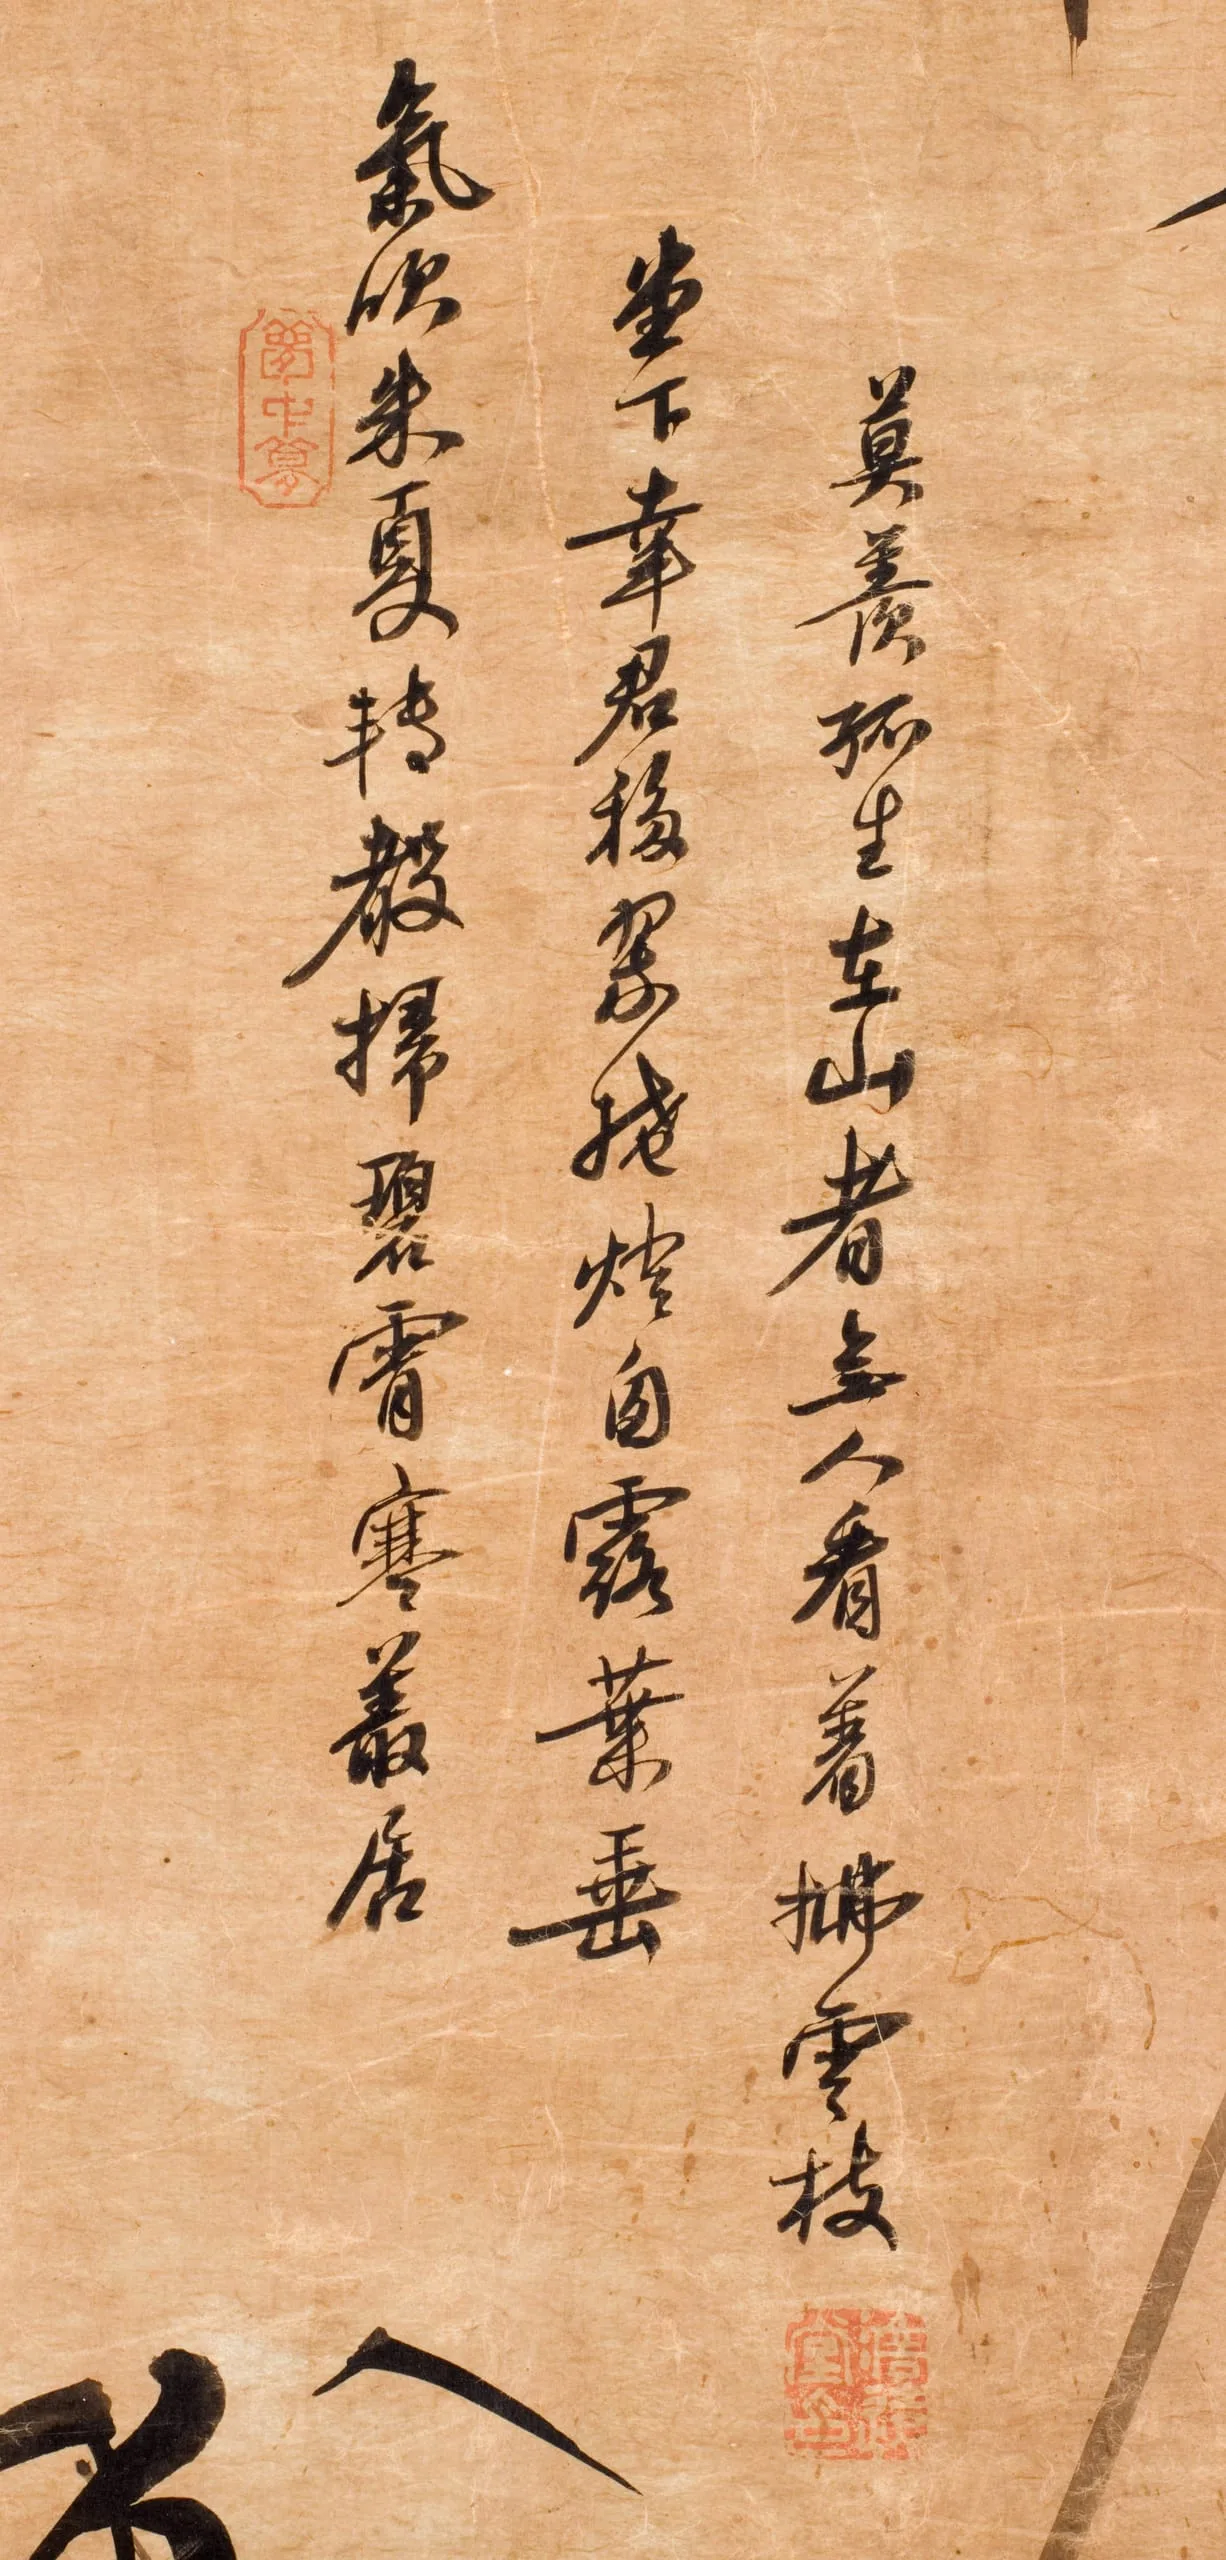 氣吹朱夏轉聲掃碧霄寒叢居
堂下幸君移翠掩燈囱露葉垂
莫羨孤生在山者無人看著拂雲枝